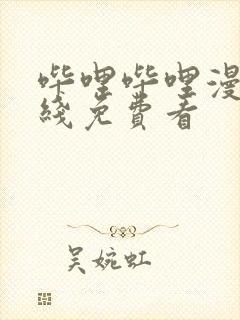 哔哩哔哩漫
线免费看
吴婉虹